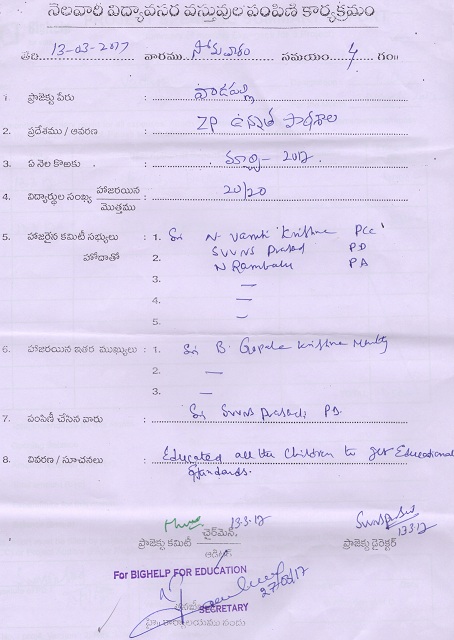 నెలవారీ విద్యావసర వస్తువుల పంపిణీ కార్యక్రమం
తేది 13-03-2017 వారము సోమవారం సమయం 4 గం॥
1. ప్రాజెక్టు పేరు : పాడేపల్లి
2. ప్రదేశము / ఆవరణ : ZP ఉన్నత పాఠశాల
3. ఏ నెల కొఱకు : మార్చి - 2017
4. విద్యార్థుల సంఖ్య హాజరయిన / మొత్తము : 20/20
5. హాజరైన కమిటీ సభ్యులు : 1. Sri N Vamsi Krishna PCC
హోదాతో 2. SVVNS Prasad PD
N Rambabu PA
3. —
4. —
5. —
6. హాజరయిన ఇతర ముఖ్యులు : 1. Sri B. Gopala Krishna Murthy
2. —
3. —
7. పంపిణీ చేసిన వారు : Sri SVVNS Prasad PD
8. వివరణ / సూచనలు : Educated all the children to get Educational
Standards.
13.3.17
ప్రాజెక్టు కమిటీ చైర్‌మెన్, ప్రాజెక్టు డైరెక్టర్
ఆడిటర్ 13.3.17
For BIGHELP FOR EDUCATION
27/03/17
SECRETARY